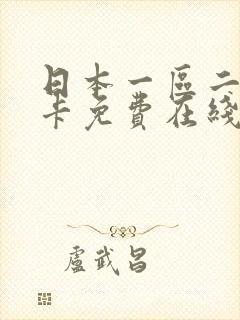 日本一區二
卡免費在綫
盧武昌